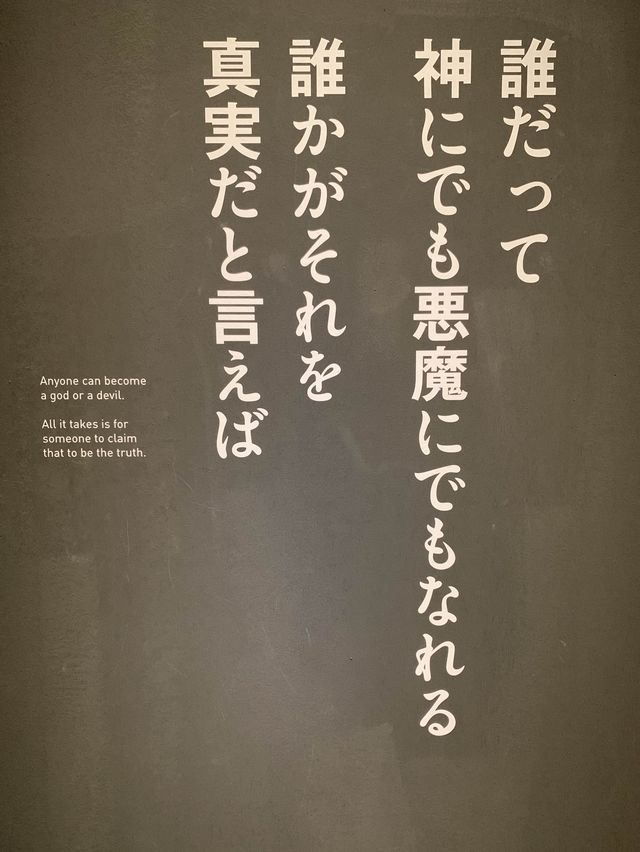 誰だって
神にでも悪魔にでもなれる
誰かがそれを
真実だと言えば
Anyone can become
a god or a devil.
All it takes is for
someone to claim
that to be the truth.